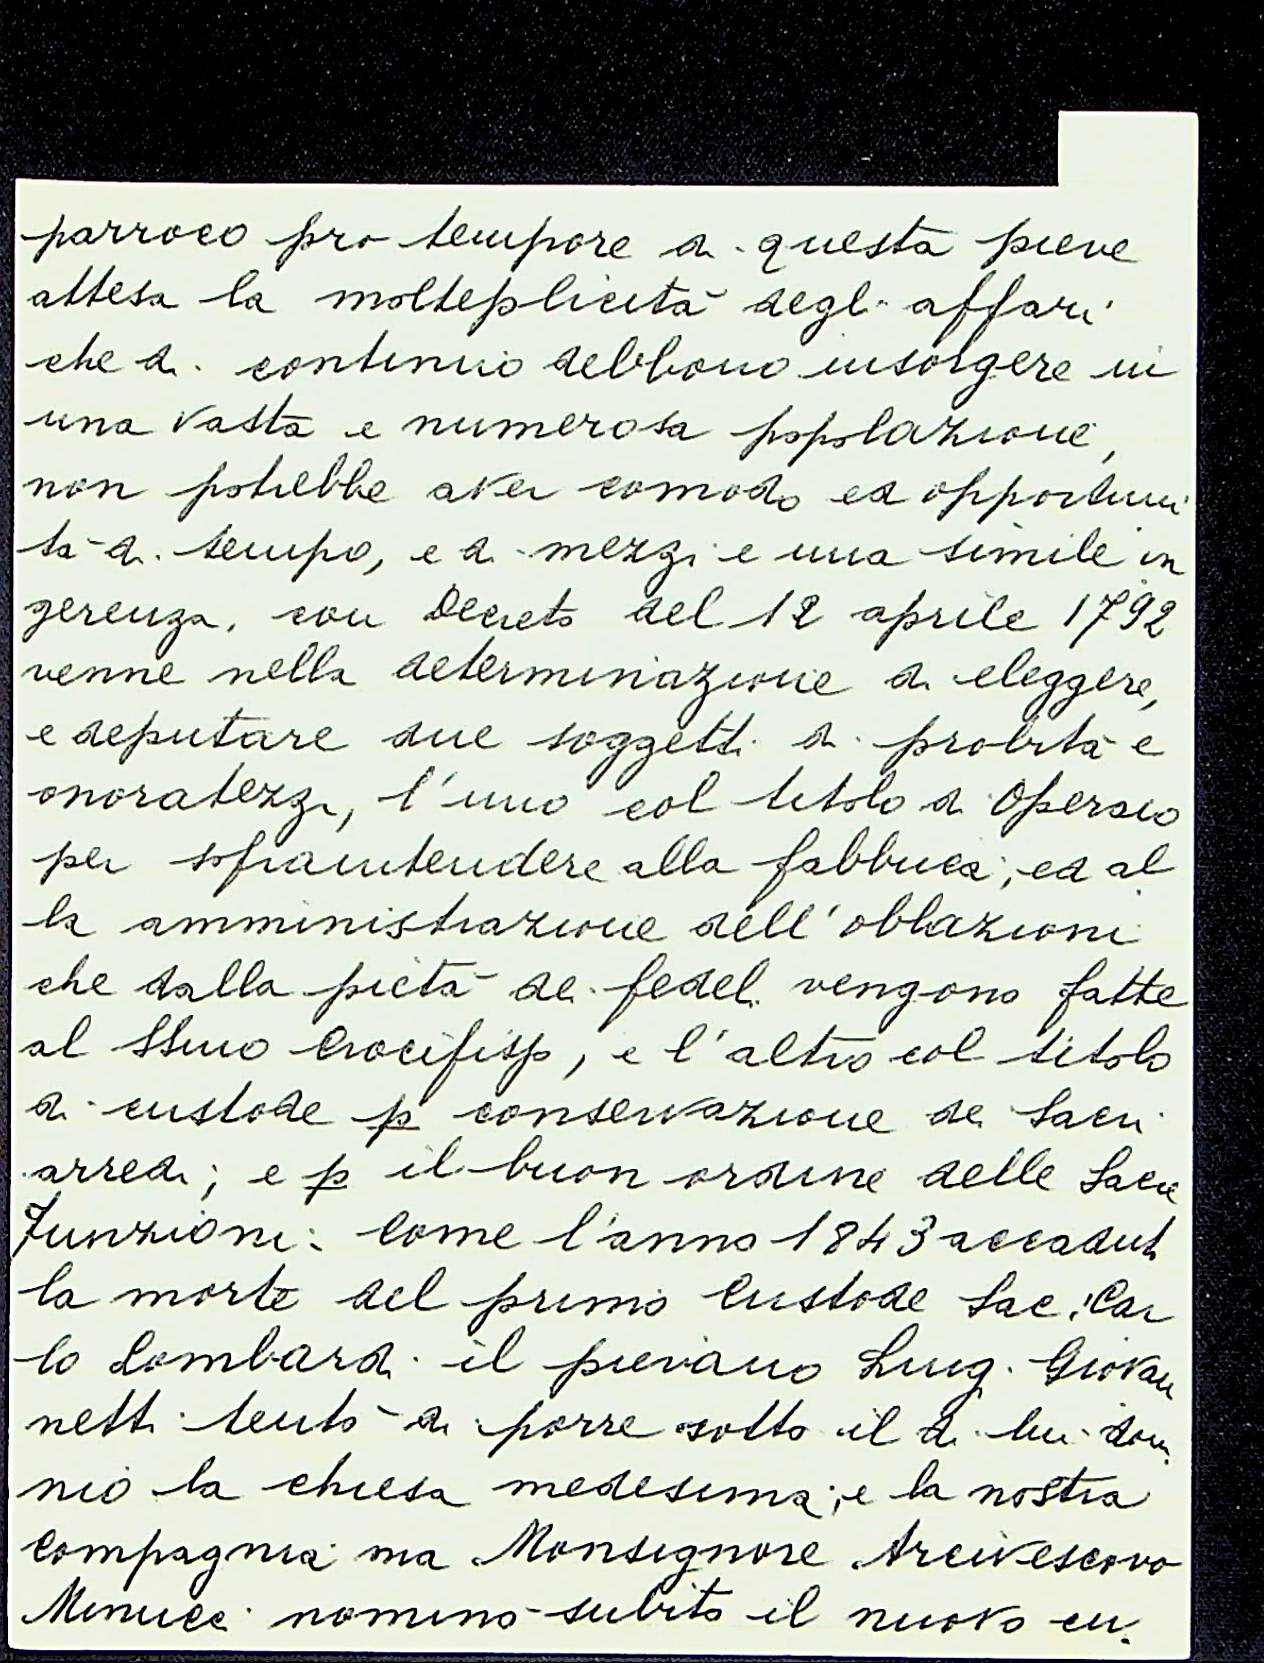 parroco pro-tempore di questa pieve
attesa la molteplicità degli affari
che di continuo debbono insorgere in
una vasta e numerosa popolazione,
non potrebbe aver comodo ed opportuni
tà di tempo, e di mezzi e una simile in
gerenza, con Decreto del 12 aprile 1792
venne nella determinazione di eleggere,
e deputare due soggetti di probità e
onoratezza, l'uno col titolo di Operaio
per sopraintendere alla fabbrica; ed al
la amministrazione dell'oblazioni
che dalla pietà dei fedeli vengono fatte
al SSmo Crocifisso, e l'altro col titolo
di custode p conservazione dei Sacri
arredi; e p il buon ordine delle Sacre
Funzioni: Come l'anno 1843 accaduta
la morte del primo Custode Sac. Car
lo Lombardi il pievano Luigi Giovan
netti tentò di porre sotto il di lui domi
nio la chiesa medesima; e la nostra
Compagnia ma Monsignore Arcivescovo
Minucci nominò subito il nuovo cu.